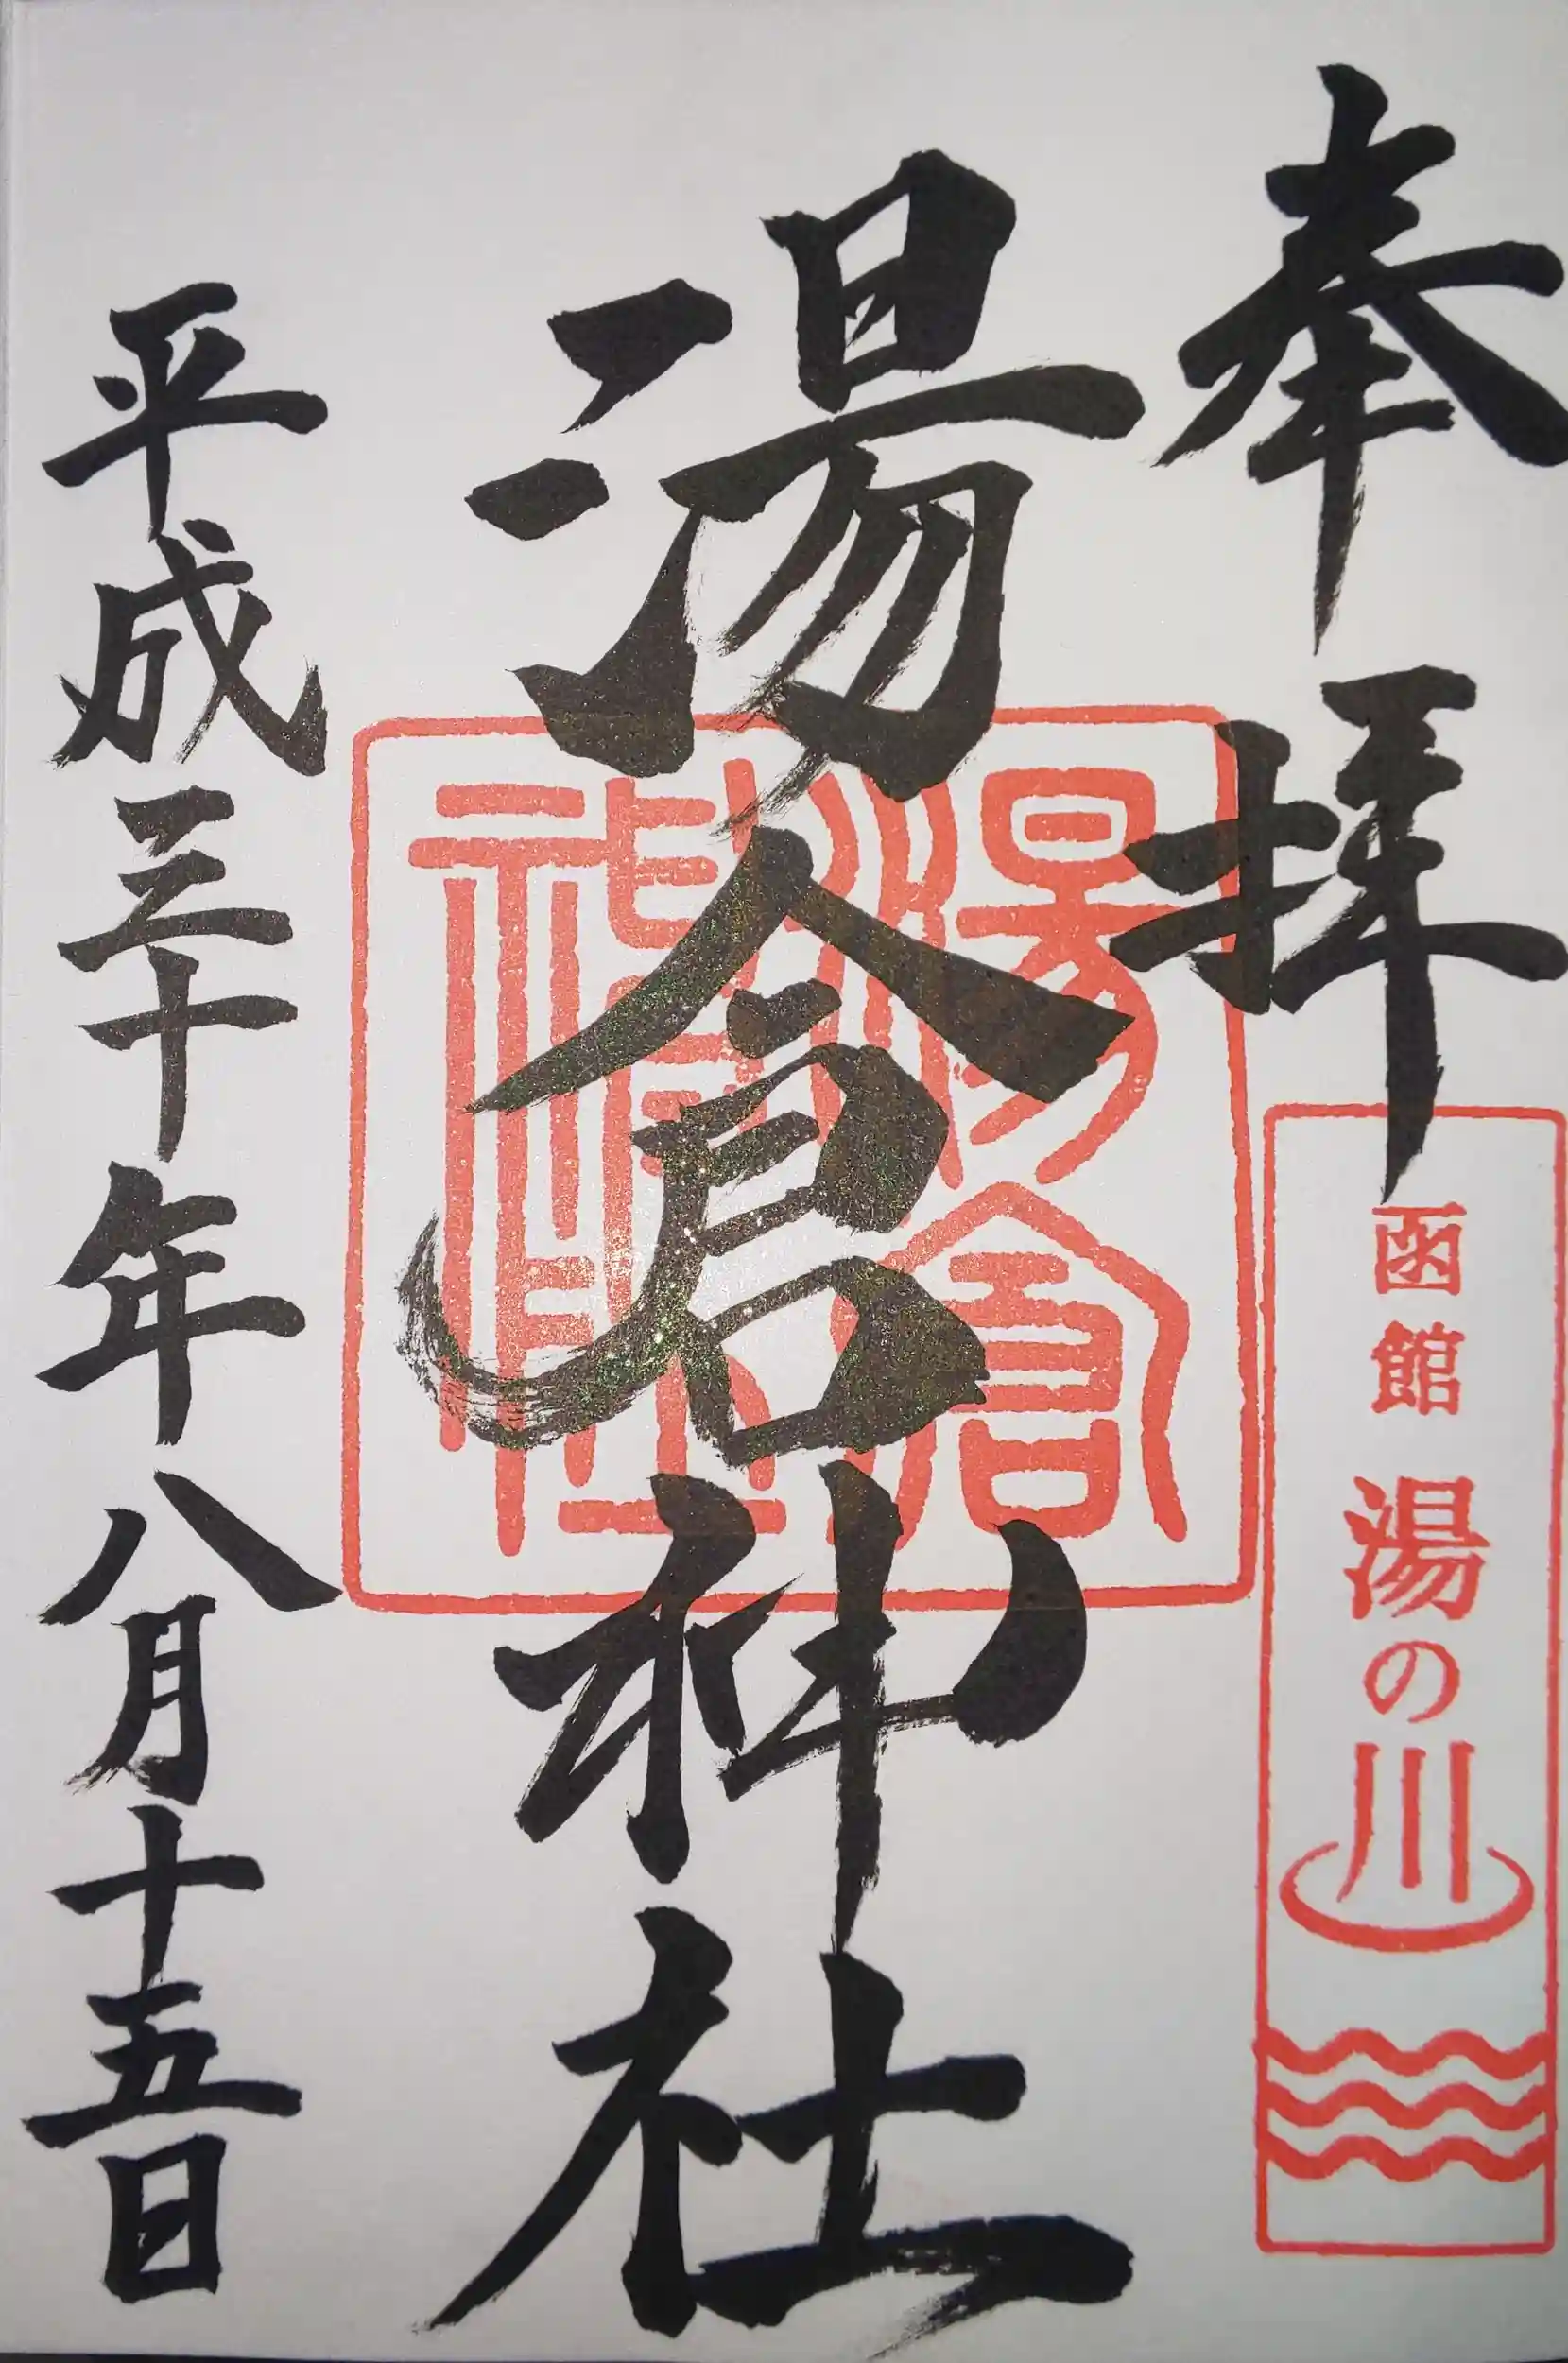 奉拝
函館 湯の川
湯倉神社
湯倉
神社
平成三十年八月十五日